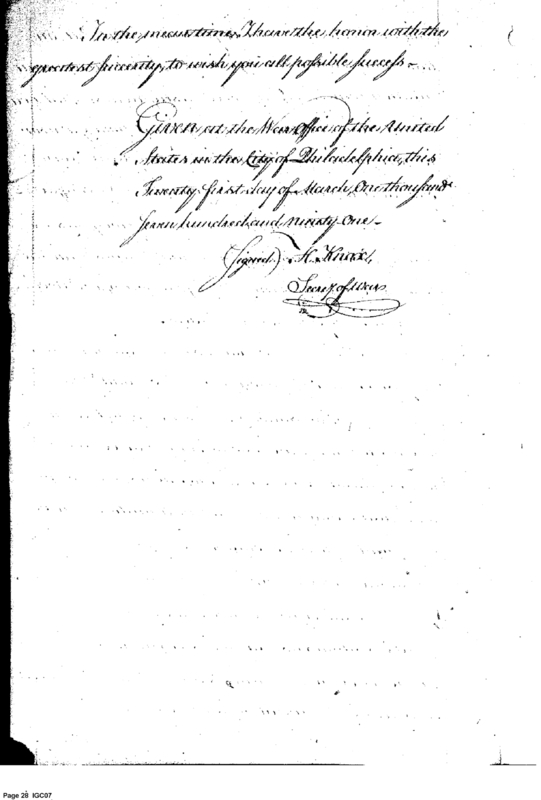 In the mean time, I have the honor with the
greatest sincerity, to wish you all possible success –
Given at the War Office of the United
States in the City of Philadelphia, this
Twenty first day of March, One thousand
seven hundred and ninety One –
(signed) H. Knox,
Secrey. of War
Page 28 IGC07